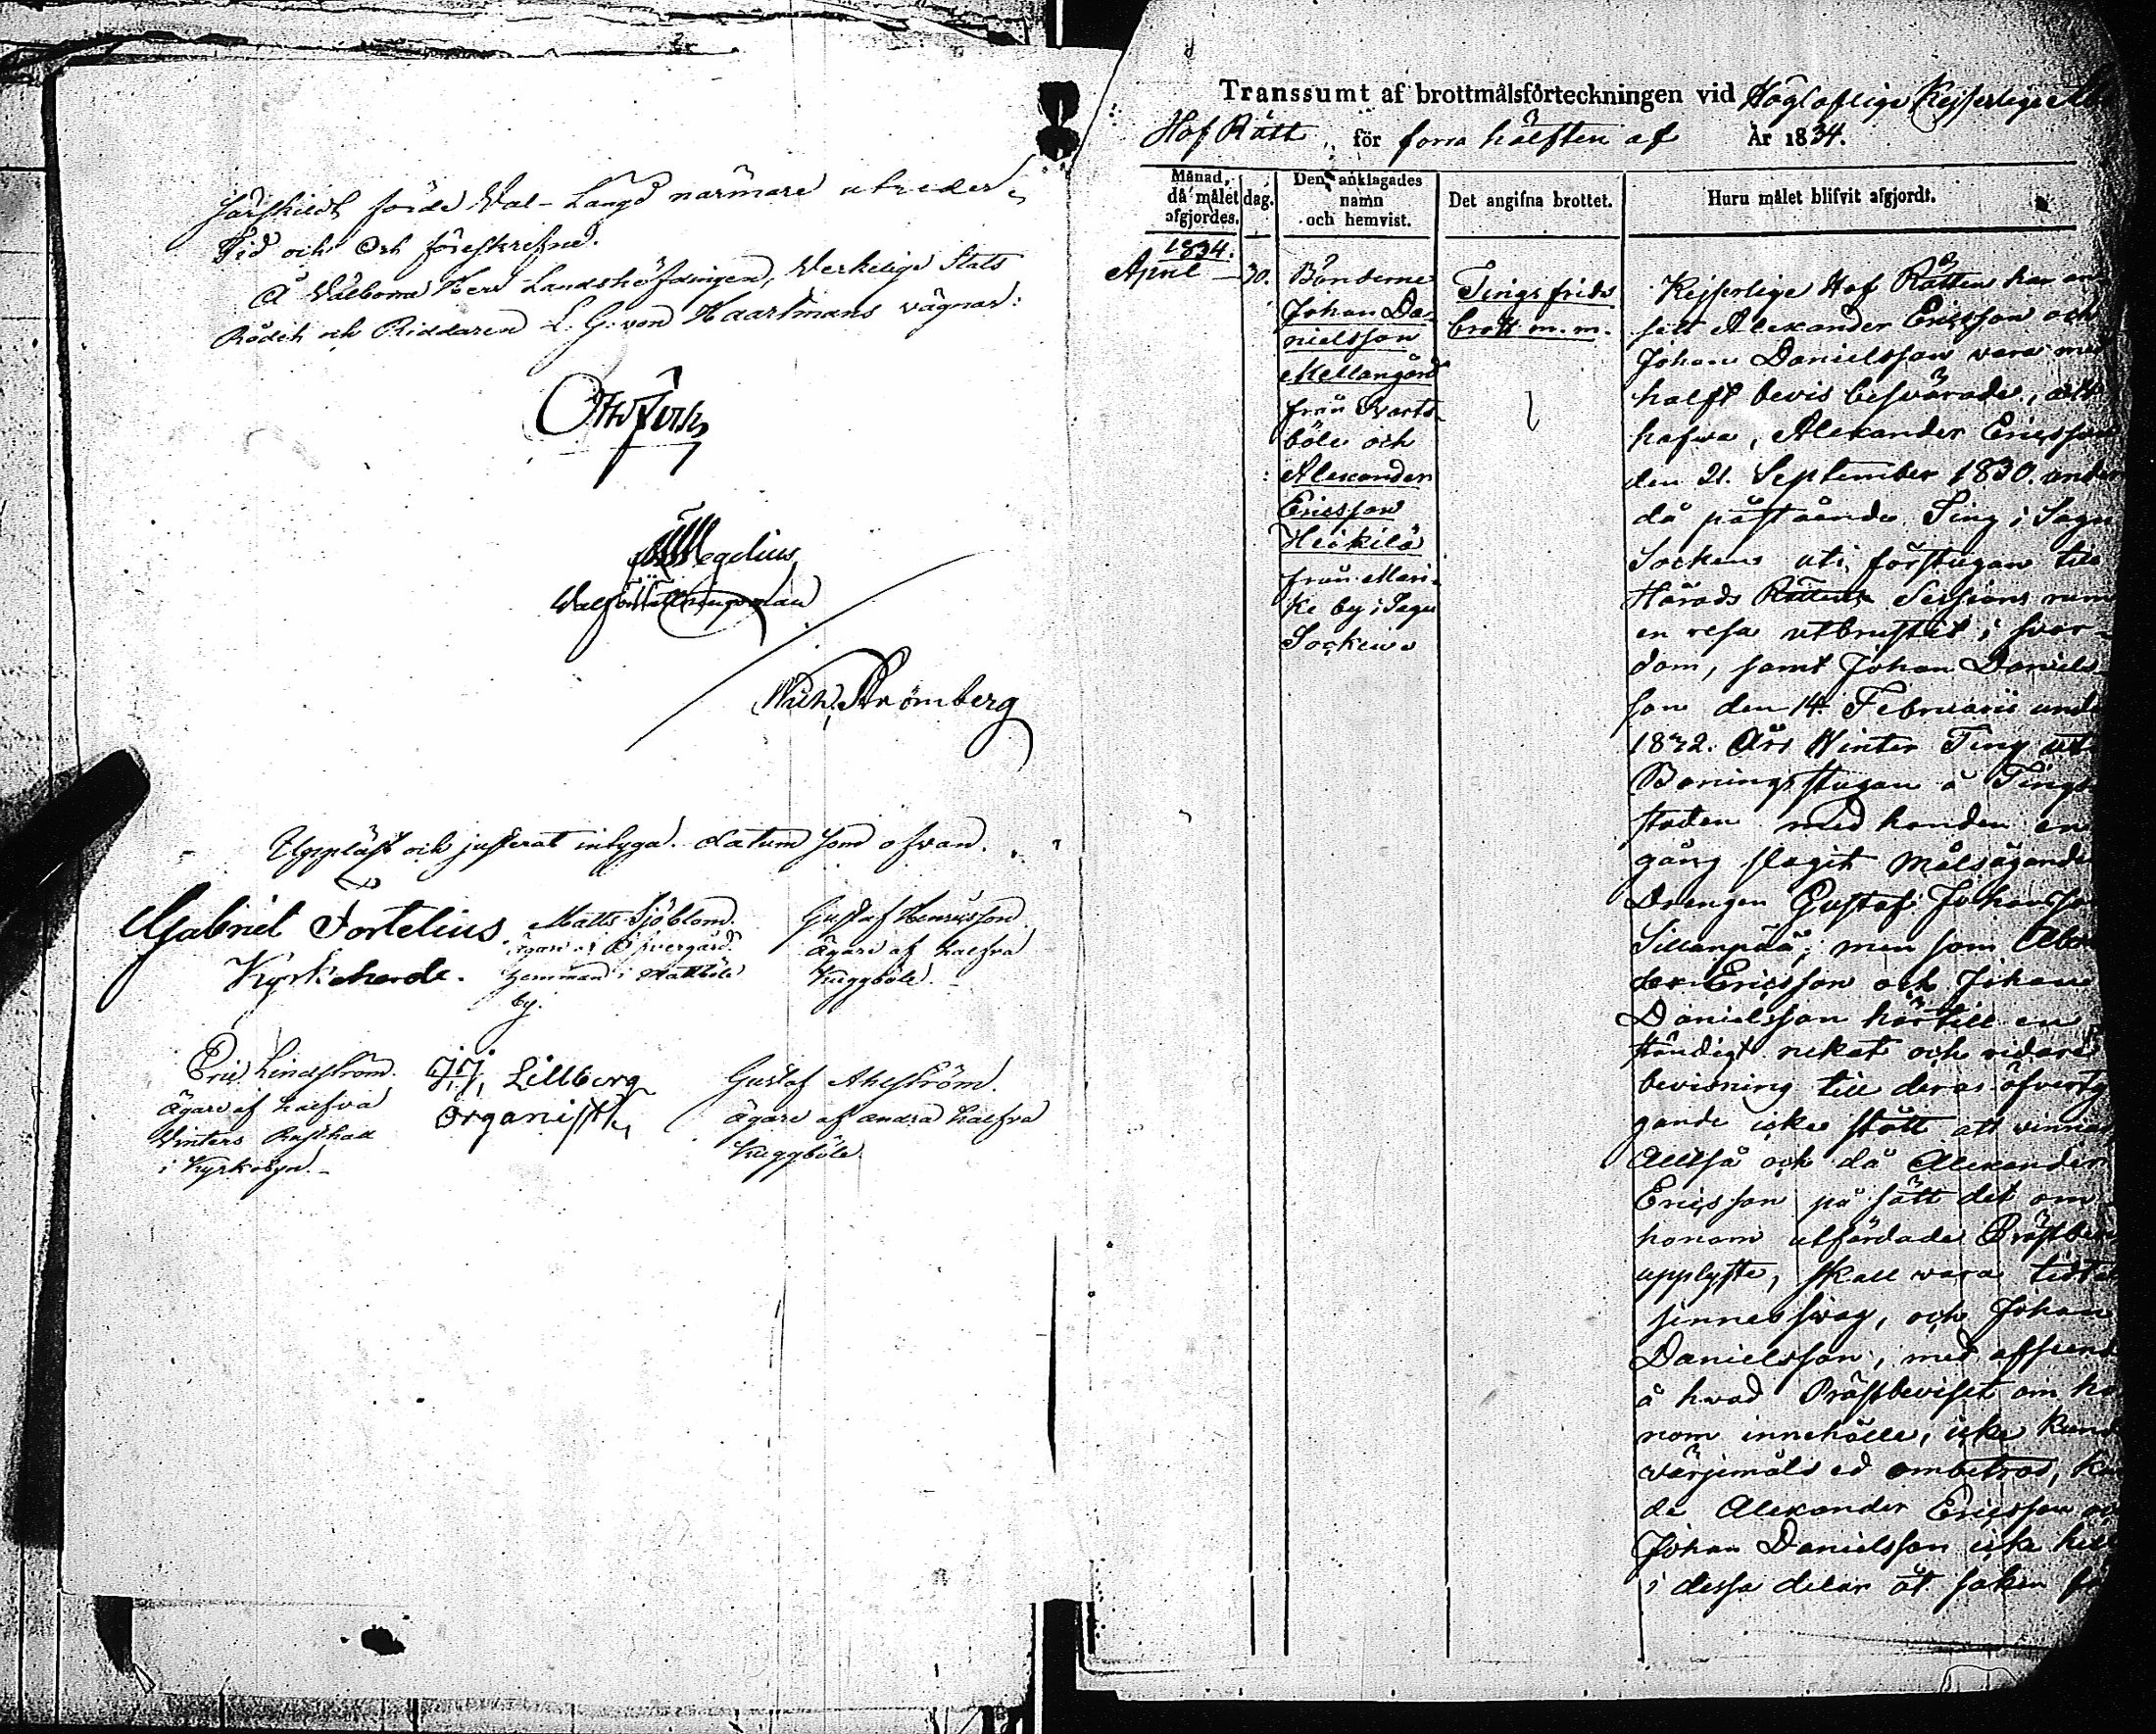 särskildt förde Val-Längd närmare utreder.
Tid och Ort föreskrefne.
Å Välborna Herr Landshöfdingen, Verkelige Stats
Rådet och Riddaren L. G. von Haartmans vägnar:
Wilh. Strömberg
Uppläst och justerat intyga. datum som ofvan.
Gabriel Fortelius
Kyrkoherde.
Matts Sjöblom
ägare i Öfvergård
hemman i
by.
Gustaf Henricsson
ägare af halfva
Kuggböle.
Eric Lindström.
ägare af halfva
Winters Rusthall
i Kyrkobyn.
J. J. Lillberg
Organist
Gustaf Ahlström.
ägare af andra halfva
Kuggböle
Transsumt af brottmålsförteckningen vid Högloflige Kejserlige Åbo
Hof Rätt, för förra hälften af År 1834.
Månad, då målet afgjordes.
dag.
Den anklagades namn och hemvist.
Det angifna brottet.
Huru målet blifvit afgjordt.
1834.
April 30.
Bönderne
Johan Da-
nielsson
Mellangård
från Svarts-
böle och
Alexander
Ericsson
Heikilä
från Mari-
ke by i Sagu
Socken
Tings frids
brott m. m.
Kejserlige Hof Rätten har an-
sett Alexander Ericsson och
Johan Danielsson vara med
halft bevis besvärade, att
hafva, Alexander Ericsson
den 21. September 1830. under
då påstående Ting i Sagu
Socken uti förstugan till
Härads Rättens Sessions rum
en resa utbrustit i svor-
dom, samt Johan Daniels-
son den 14 Februarii under
1832. Års Winter Ting uti
Boningsstugan å Tings
staden med handen en
gång slagit Målsäganden
Drengen Gustaf Johansson
Sillanpää; men som Alexan-
der Ericsson och Johan
Danielsson härtill en-
ständigt nekat och vidare
bevisning till deras öfverty-
gande icke stått att vinnas
Alltså och då Alexander
Ericsson på sätt det om
honom utfärdade Prästbevis
upplyste, skall vara tidtals
sinnessvag, och Johan
Danielsson, med afseende
å hvad Prästbeviset om ho-
nom innehölle, icke kunde
värjemåls ed ombetros, kun-
de Alexander Ericsson och
Johan Danielsson icke heller
i dessa delar åt saken